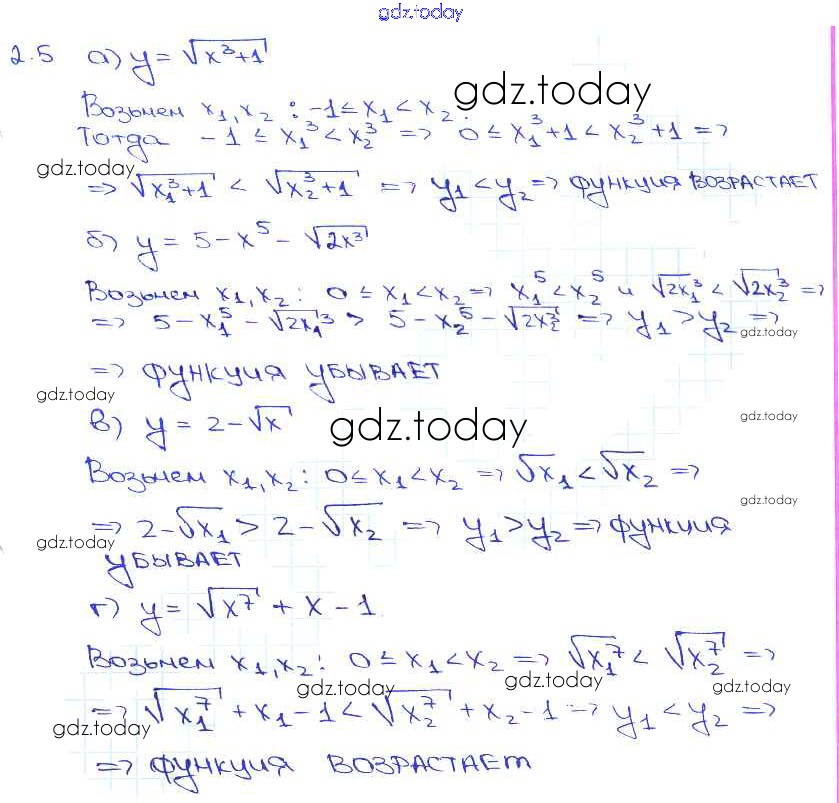 gdz.today
2.5 а) y = √(x³+1)
gdz.today
Возьмем x₁, x₂ : -1 ≤ x₁ < x₂.
Тогда -1 ≤ x₁³ < x₂³ => 0 ≤ x₁³+1 < x₂³+1 =>
gdz.today
=> √(x₁³+1) < √(x₂³+1) => y₁ < y₂ => функция возрастает
б) y = 5 - x⁵ - √(2x³)
Возьмем x₁, x₂ : 0 ≤ x₁ < x₂ => x₁⁵ < x₂⁵ и √(2x₁³) < √(2x₂³) =>
=> 5 - x₁⁵ - √(2x₁³) > 5 - x₂⁵ - √(2x₂³) => y₁ > y₂ =>
gdz.today
=> функция убывает
gdz.today
в) y = 2 - √x
gdz.today
gdz.today
Возьмем x₁, x₂ : 0 ≤ x₁ < x₂ => √x₁ < √x₂ =>
gdz.today
=> 2 - √x₁ > 2 - √x₂ => y₁ > y₂ => функция
gdz.today
убывает
г) y = √(x⁷) + x - 1
Возьмем x₁, x₂ : 0 ≤ x₁ < x₂ => √(x₁⁷) < √(x₂⁷) =>
gdz.today
gdz.today
gdz.today
=> √(x₁⁷) + x₁ - 1 < √(x₂⁷) + x₂ - 1 => y₁ < y₂ =>
gdz.today
=> функция возрастает